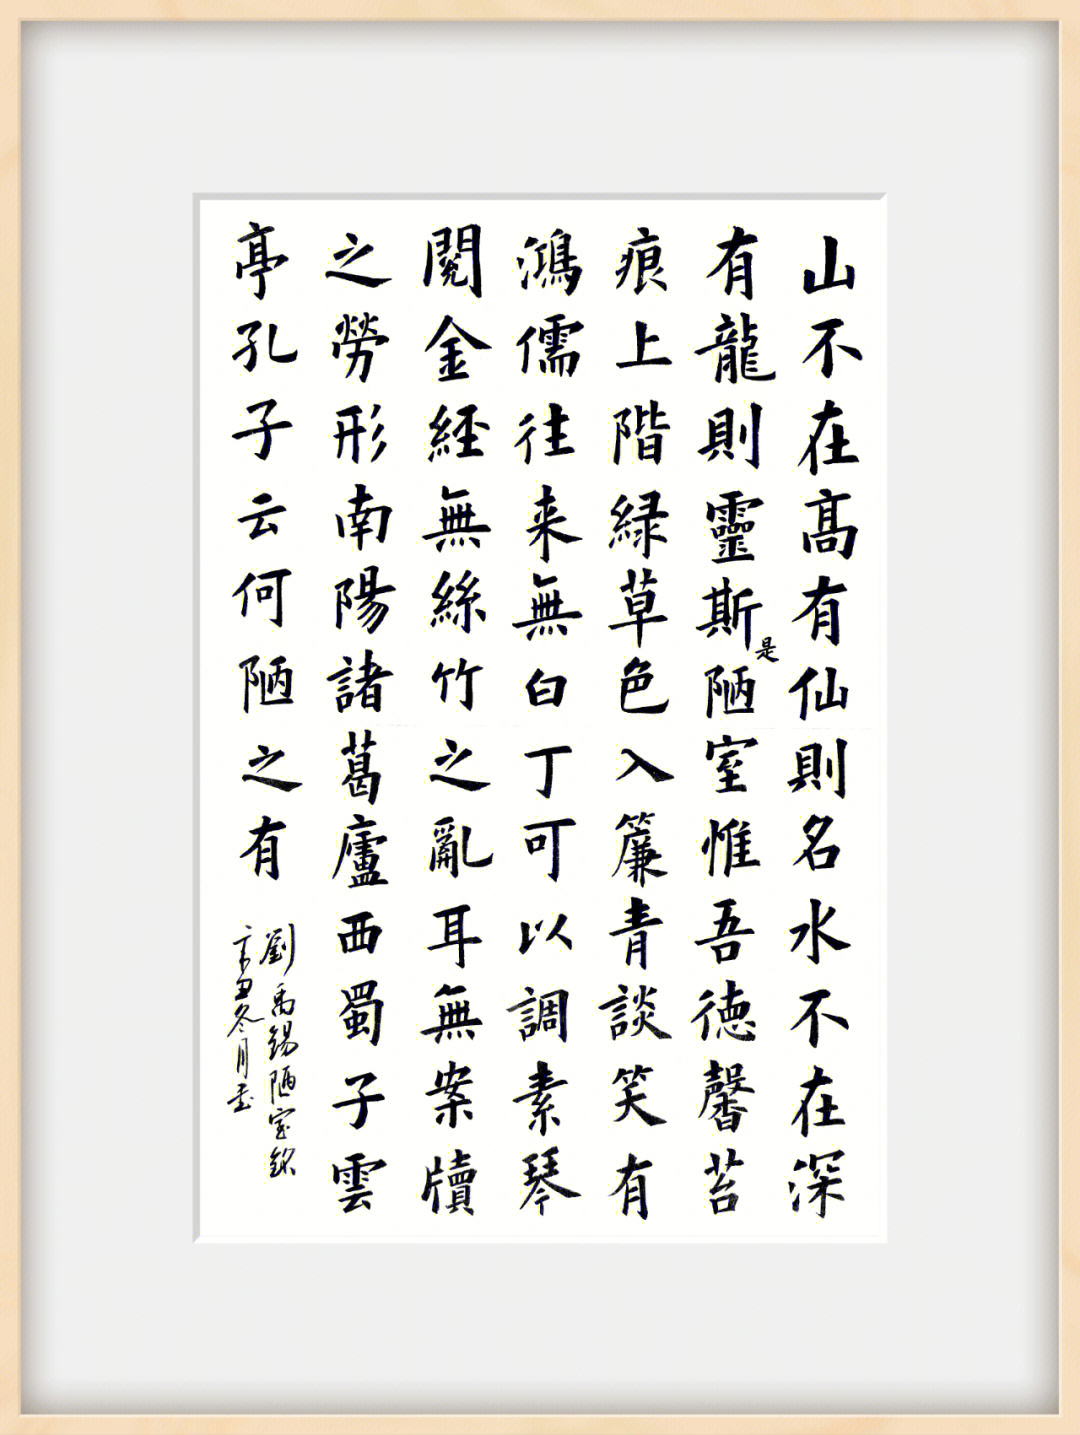 山不在髙有仙則名水不在深
有龍則靈斯是陋室惟吾徳馨苔
痕上階緑草色入簾青談笑有
鴻儒往来無白丁可以調素琴
閱金經無絲竹之亂耳無案牘
之勞形南陽諸葛廬西蜀子雲
亭孔子云何陋之有
劉禹錫陋室銘
辛丑冬月